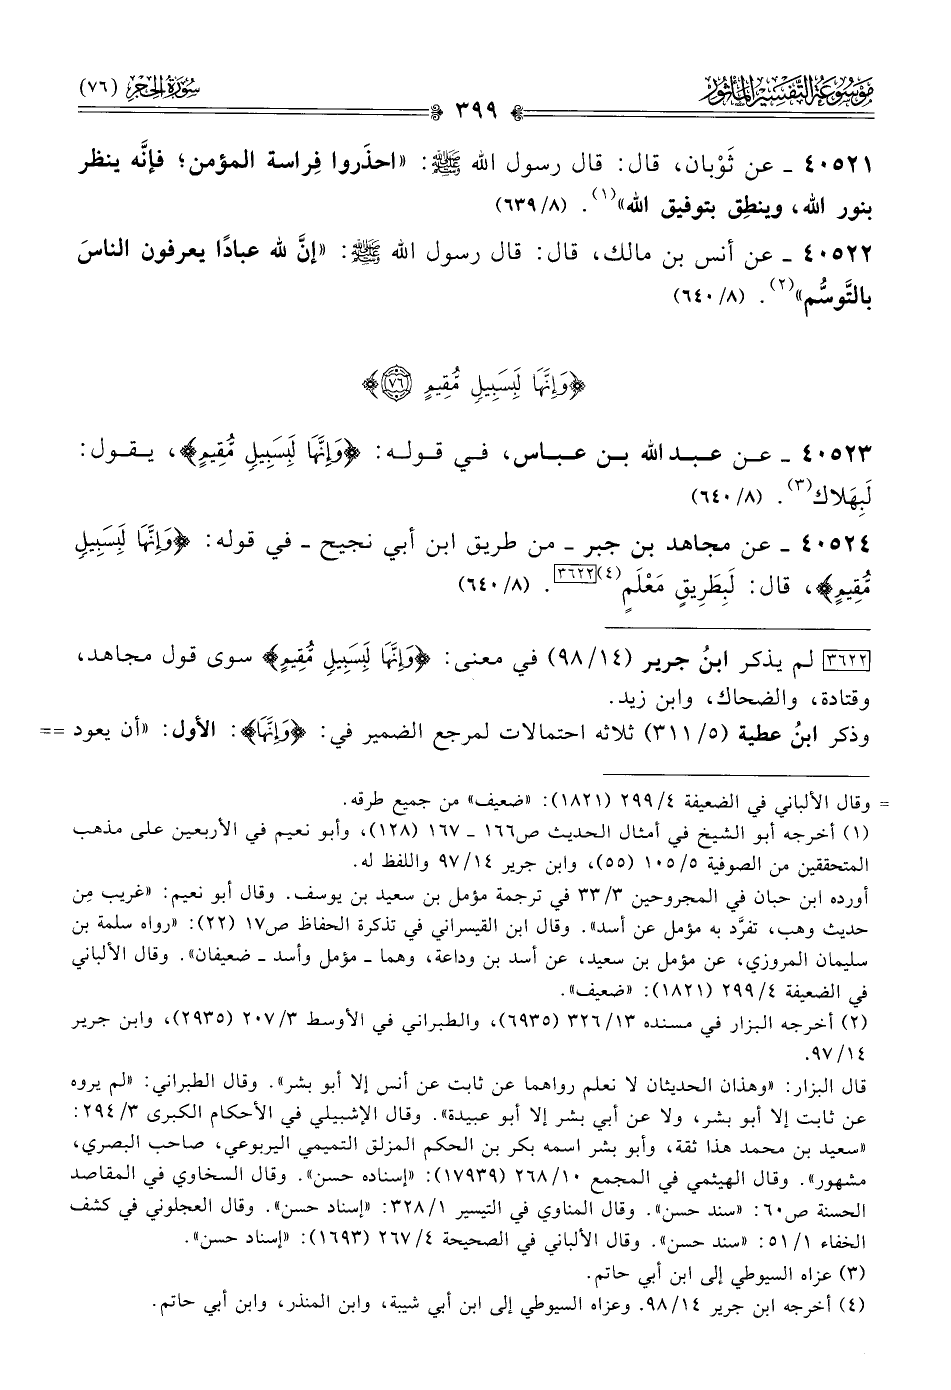 موسوعة التفسير المأثور
سورة الحجر (٧٦)
٣٩٩
٤٠٥٢١ ـ عن ثَوْبان، قال: قال رسول الله ﷺ: «احذَروا فِراسة المؤمن؛ فإنَّه ينظر
بنور الله، وينطِق بتوفيق الله»(١). (٦٣٩/٨)
٤٠٥٢٢ ـ عن أنس بن مالك، قال: قال رسول الله ﷺ: «إنَّ لله عبادًا يعرفون الناسَ
بالتَّوسُّم»(٢). (٦٤٠/٨)
﴿وَإِنَّهَا لَبِسَبِيلٍ مُّقِيمٍ ٧٦﴾
٤٠٥٢٣ ـ عن عبد الله بن عباس، في قوله: ﴿وَإِنَّهَا لَبِسَبِيلٍ مُّقِيمٍ﴾، يقول:
لَبِهَلاك(٣). (٦٤٠/٨)
٤٠٥٢٤ ـ عن مجاهد بن جبر ـ من طريق ابن أبي نجيح ـ في قوله: ﴿وَإِنَّهَا لَبِسَبِيلٍ
مُّقِيمٍ﴾، قال: لَبِطَرِيقٍ مَعْلَمٍ(٤)[٣٦٢٢]. (٦٤٠/٨)
[٣٦٢٢] لم يذكر ابنُ جرير (٩٨/١٤) في معنى: ﴿وَإِنَّهَا لَبِسَبِيلٍ مُّقِيمٍ﴾ سوى قول مجاهد،
وقتادة، والضحاك، وابن زيد.
وذكر ابنُ عطية (٣١١/٥) ثلاثه احتمالات لمرجع الضمير في: ﴿وَإِنَّهَا﴾: الأول: «أن يعود ==
= وقال الألباني في الضعيفة ٢٩٩/٤ (١٨٢١): «ضعيف» من جميع طرقه.
(١) أخرجه أبو الشيخ في أمثال الحديث ص١٦٦ ـ ١٦٧ (١٢٨)، وأبو نعيم في الأربعين على مذهب
المتحققين من الصوفية ١٠٥/٥ (٥٥)، وابن جرير ٩٧/١٤ واللفظ له.
أورده ابن حبان في المجروحين ٣٣/٣ في ترجمة مؤمل بن سعيد بن يوسف. وقال أبو نعيم: «غريب مِن
حديث وهب، تفرَّد به مؤمل عن أسد». وقال ابن القيسراني في تذكرة الحفاظ ص١٧ (٢٢): «رواه سلمة بن
سليمان المروزي، عن مؤمل بن سعيد، عن أسد بن وداعة، وهما ـ مؤمل وأسد ـ ضعيفان». وقال الألباني
في الضعيفة ٢٩٩/٤ (١٨٢١): «ضعيف».
(٢) أخرجه البزار في مسنده ٣٢٦/١٣ (٦٩٣٥)، والطبراني في الأوسط ٢٠٧/٣ (٢٩٣٥)، وابن جرير
٩٧/١٤.
قال البزار: «وهذان الحديثان لا نعلم رواهما عن ثابت عن أنس إلا أبو بشر». وقال الطبراني: «لم يروه
عن ثابت إلا أبو بشر، ولا عن أبي بشر إلا أبو عبيدة». وقال الإشبيلي في الأحكام الكبرى ٢٩٤/٣:
«سعيد بن محمد هذا ثقة، وأبو بشر اسمه بكر بن الحكم المزلق التميمي اليربوعي، صاحب البصري،
مشهور». وقال الهيثمي في المجمع ٢٦٨/١٠ (١٧٩٣٩): «إسناده حسن». وقال السخاوي في المقاصد
الحسنة ص٦٠: «سند حسن». وقال المناوي في التيسير ٣٢٨/١: «إسناد حسن». وقال العجلوني في كشف
الخفاء ٥١/١: «سند حسن». وقال الألباني في الصحيحة ٢٦٧/٤ (١٦٩٣): «إسناد حسن».
(٣) عزاه السيوطي إلى ابن أبي حاتم.
(٤) أخرجه ابن جرير ٩٨/١٤. وعزاه السيوطي إلى ابن أبي شيبة، وابن المنذر، وابن أبي حاتم.